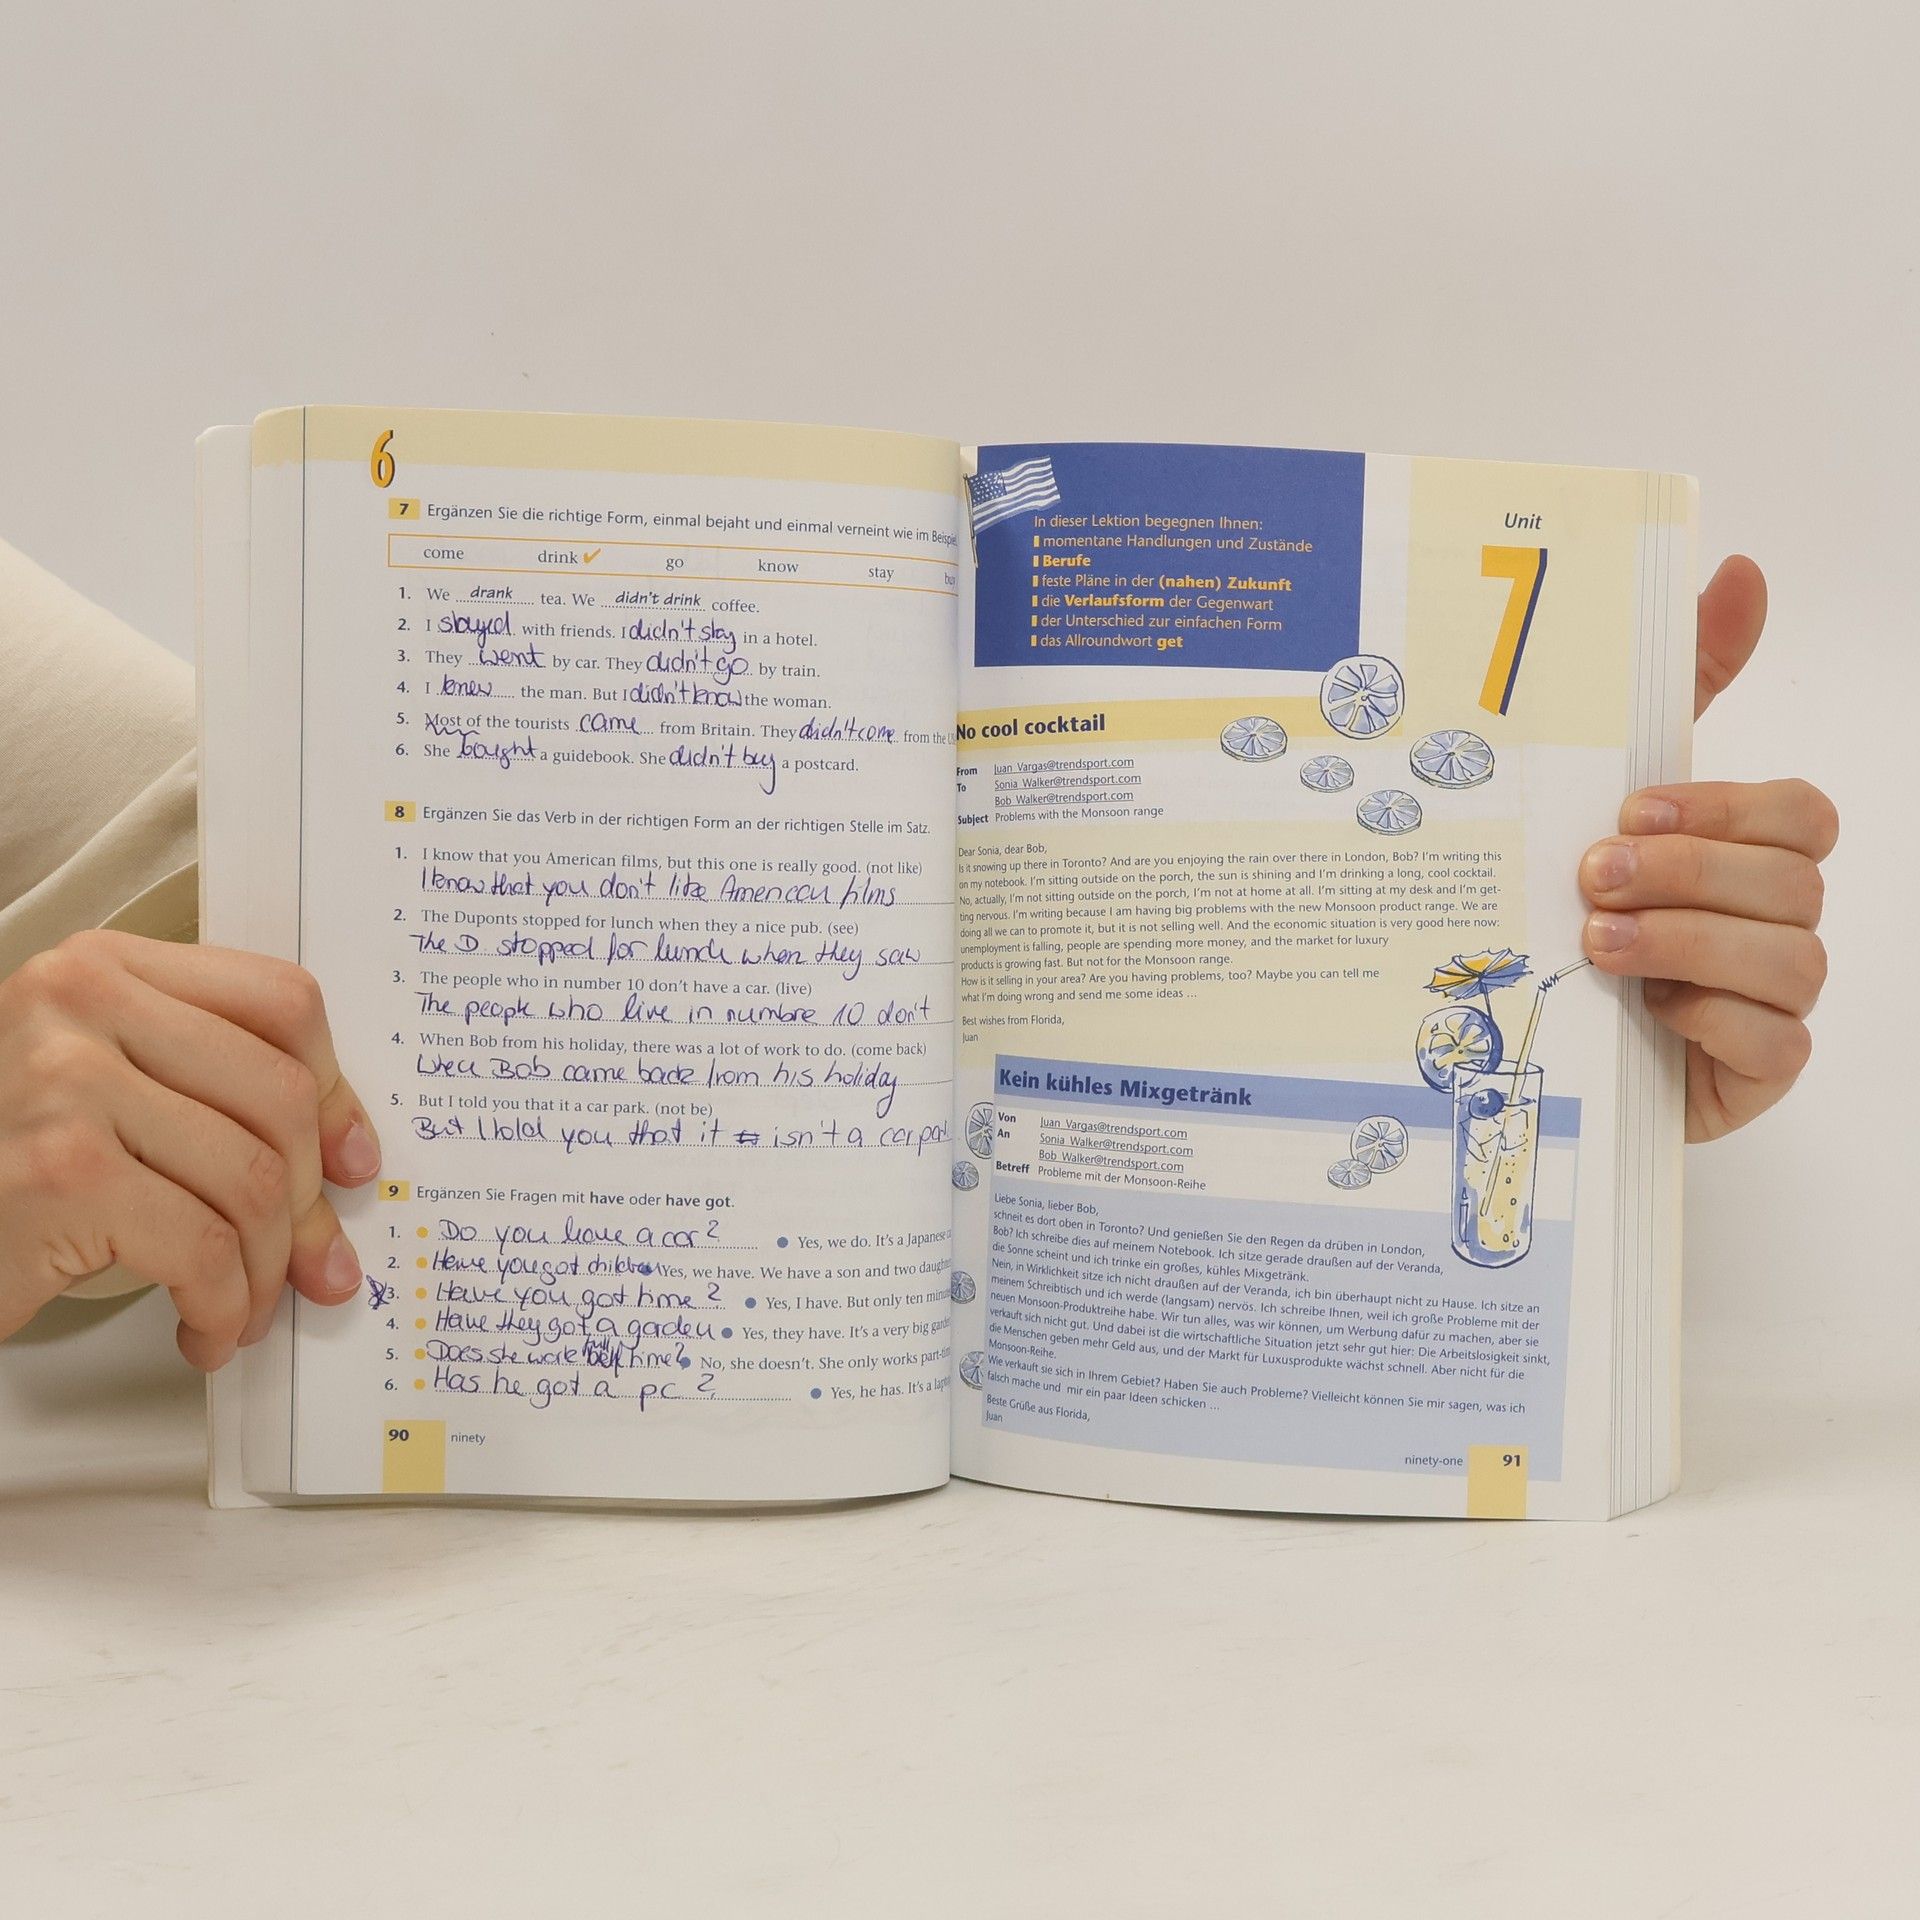 6
7 Ergänzen Sie die richtige Form, einmal bejaht und einmal verneint wie im
come drink ✓ go know stay
1. We drank tea. We didn't drink coffee.
2. I stayed with friends. I didn't stay in a hotel.
3. They went by car. They didn't go by train.
4. I knew the man. But I didn't know the woman.
5. Most of the tourists came from Britain. They didn't come from the
6. She bought a guidebook. She didn't buy a postcard.
8 Ergänzen Sie das Verb in der richtigen Form an der richtigen Stelle im Satz.
1. I know that you American films, but this one is really good. (not like)
I know that you don't like American films
2. The Duponts stopped for lunch when they a nice pub. (see)
The D. stopped for lunch when they saw
3. The people who in number 10 don't have a car. (live)
The people who live in numbre 10 don't
4. When Bob from his holiday, there was a lot of work to do. (come back)
When Bob came back from his holiday
5. But I told you that it a car park. (not be)
But I told you that it isn't a car
9 Ergänzen Sie Fragen mit have oder have got.
1. Do you have a car? Yes, we do. It's a Japanese
2. Have you got children Yes, we have. We have a son and two
3. Have you got time? Yes, I have. But only ten
4. Have they got a garden Yes, they have. It's a very big
5. Does she work time? No, she doesn't. She only works
6. Has he got a pc? Yes, he has. It's a
90 ninety
In dieser Lektion begegnen Ihnen:
momentane Handlungen und Zustände
Berufe
feste Pläne in der (nahen) Zukunft
die Verlaufsform der Gegenwart
der Unterschied zur einfachen Form
das Allroundwort get
Unit
7
No cool cocktail
From Juan_Vargas@trendsport.com
To Sonia_Walker@trendsport.com
Bob_Walker@trendsport.com
Subject Problems with the Monsoon range
Dear Sonia, dear Bob,
Is it snowing up there in Toronto? And are you enjoying the rain over there in London, Bob? I'm writing this
on my notebook. I'm sitting outside on the porch, the sun is shining and I'm drinking a long, cool cocktail.
No, actually, I'm not sitting outside on the porch, I'm not at home at all. I'm sitting at my desk and I'm get-
ting nervous. I'm writing because I am having big problems with the new Monsoon product range. We are
doing all we can to promote it, but it is not selling well. And the economic situation is very good here now:
unemployment is falling, people are spending more money, and the market for luxury
products is growing fast. But not for the Monsoon range.
How is it selling in your area? Are you having problems, too? Maybe you can tell me
what I'm doing wrong and send me some ideas ...
Best wishes from Florida,
Juan
Kein kühles Mixgetränk
Von Juan_Vargas@trendsport.com
An Sonia_Walker@trendsport.com
Bob_Walker@trendsport.com
Betreff Probleme mit der Monsoon-Reihe
Liebe Sonia, lieber Bob,
schneit es dort oben in Toronto? Und genießen Sie den Regen da drüben in London,
Bob? Ich schreibe dies auf meinem Notebook. Ich sitze gerade draußen auf der Veranda,
die Sonne scheint und ich trinke ein großes, kühles Mixgetränk.
Nein, in Wirklichkeit sitze ich nicht draußen auf der Veranda, ich bin überhaupt nicht zu Hause. Ich sitze an
meinem Schreibtisch und ich werde (langsam) nervös. Ich schreibe Ihnen, weil ich große Probleme mit der
neuen Monsoon-Produktreihe habe. Wir tun alles, was wir können, um Werbung dafür zu machen, aber sie
verkauft sich nicht gut. Und dabei ist die wirtschaftliche Situation jetzt sehr gut hier: Die Arbeitslosigkeit sinkt,
die Menschen geben mehr Geld aus, und der Markt für Luxusprodukte wächst schnell. Aber nicht für die
Monsoon-Reihe.
Wie verkauft sie sich in Ihrem Gebiet? Haben Sie auch Probleme? Vielleicht können Sie mir sagen, was ich
falsch mache und mir ein paar Ideen schicken ...
Beste Grüße aus Florida,
Juan
ninety-one 91